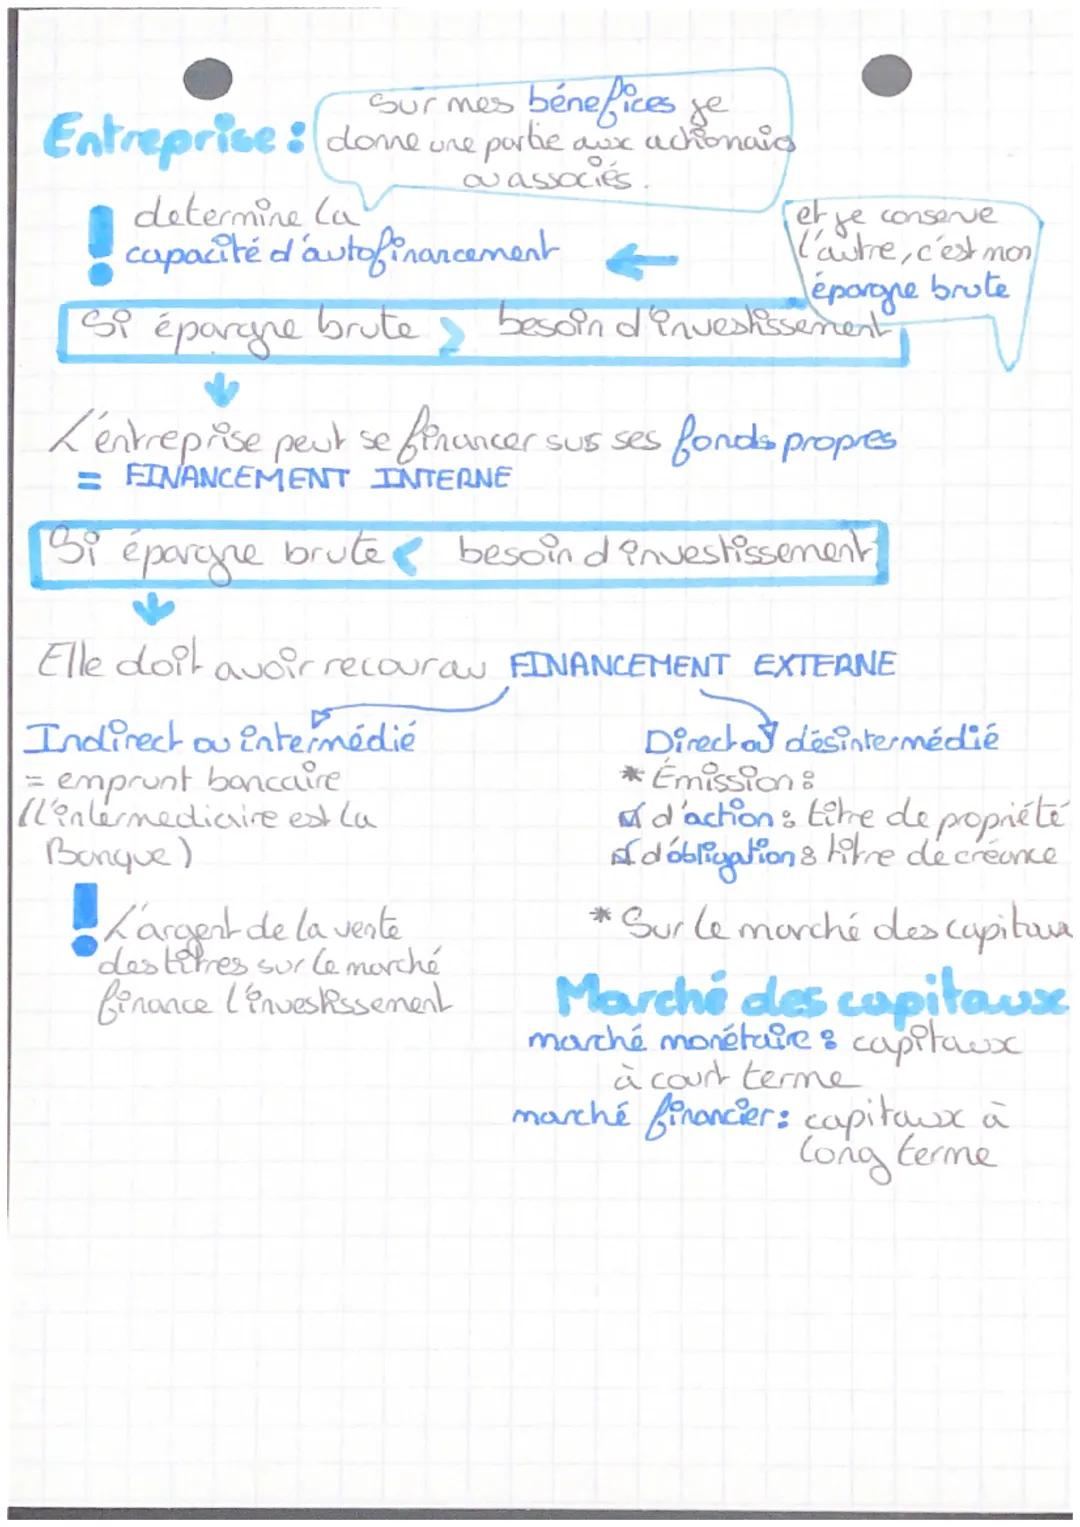 Sur mes bénefices je
Entreprise : donne une partie aux actionnais
ou associés.
determine la
capacité d'autofinancement
et je conserve
l'autre, c'est mon
épargne brute
Si épargne brute > besoin d'investissement
L'entreprise peut se financer sus ses fonds propres
= FINANCEMENT INTERNE
Si épargne brute < besoin d'investissement
Elle doit avoir recour au FINANCEMENT EXTERNE
Indirect ou intermédié
= emprunt bancaire
(l'intermediaire est la
Banque)
! L'argent de la vente
des titres sur le marché
finance l'investissement
Direct ou désintermédié
* Émission :
d'action : titre de propriété
d'obligation : titre de créance
* Sur le marché des capitaux
Marché des capitaux
marché monétaire : capitaux
à court terme
marché financier : capitaux à
long terme